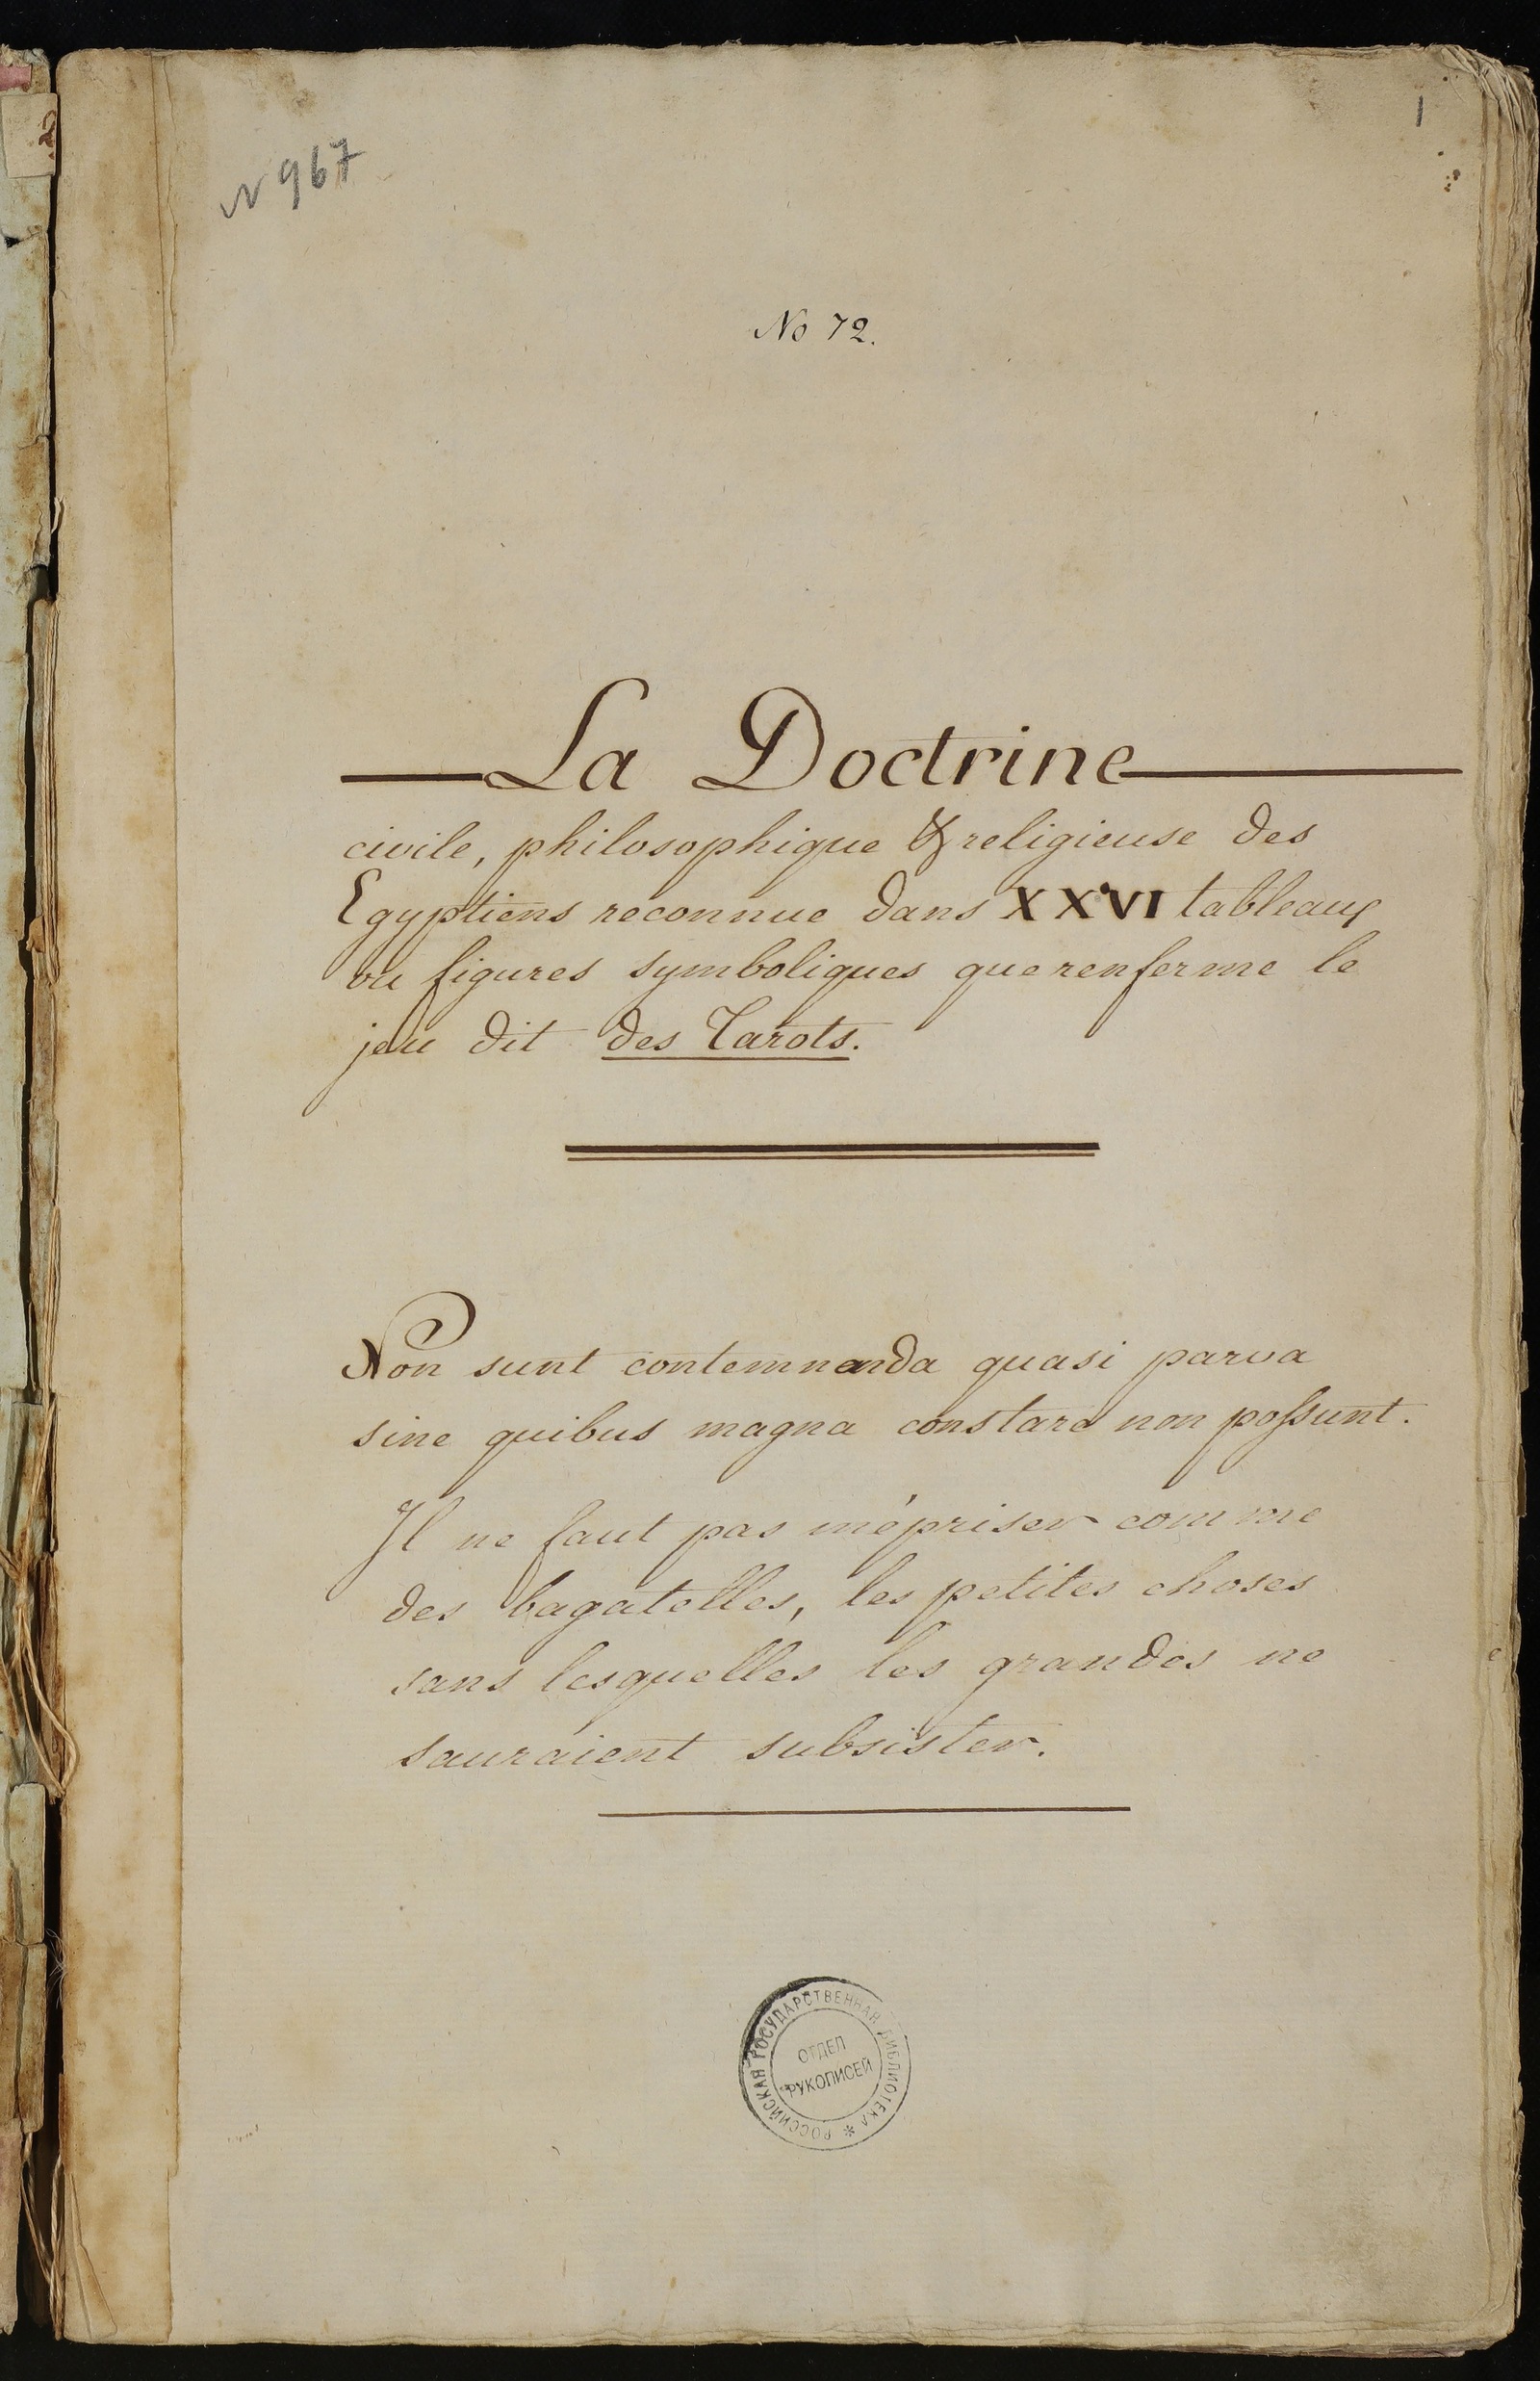 N 967
1
No 72.
La Doctrine
civile, philosophique & religieuse des
Egyptiens reconnue dans XXVI tableaux
ou figures symboliques que renferme le
jeu dit des Tarots.
Non sunt contemnenda quasi parva
sine quibus magna constare non poſsunt.
Il ne faut pas mépriser comme
des bagatelles, les petites choses
sans lesquelles les grandes ne
sauraient subsister.
РОССИЙСКАЯ ГОСУДАРСТВЕННАЯ БИБЛИОТЕКА *
ОТДЕЛ
РУКОПИСЕЙ